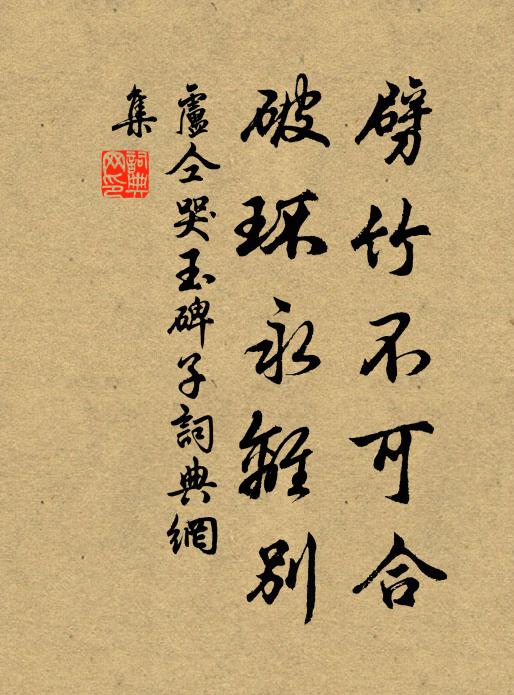 劈竹不可合
破環永離別
盧仝哭玉碑子詞典網
集
詞典網印